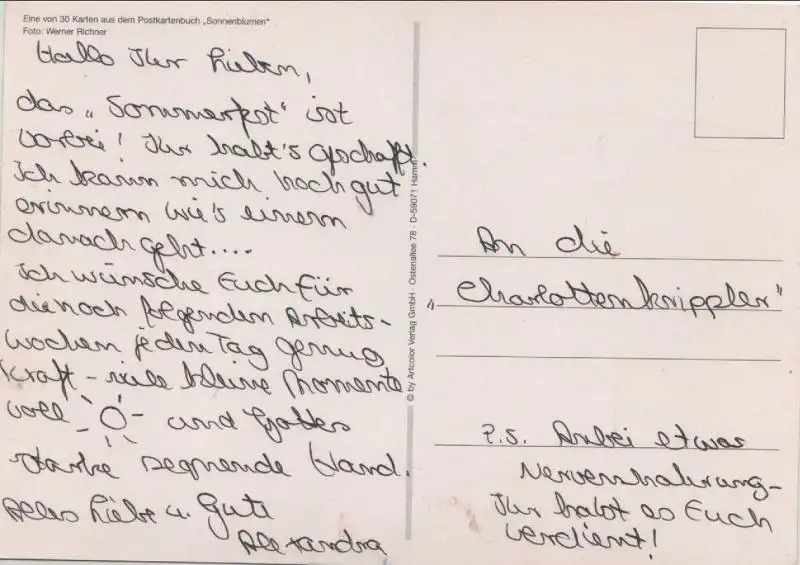 Eine von 30 Karten aus dem Postkartenbuch „Sonnenblumen“
Foto: Werner Richner
Hallo Ihr Lieben,
das „Sommerfest“ ist
vorbei! Ihr habt's geschafft.
Ich kann mich noch gut
erinnern wie's einem
danach geht....
Ich wünsche Euch für
die noch folgenden Arbeits-
wochen jeden Tag genug
Kraft - viele kleine Momente
voll und Gottes
starke segnende Hand.
Alles Liebe u. Gute
Alexandra
© by Artcolor Verlag GmbH · Ostenallee 78 · D-59071 Hamm
An die
„Charlottenkrippler“
P.S. Anbei etwas
Nervennahrung-
Ihr habt es Euch
verdient!